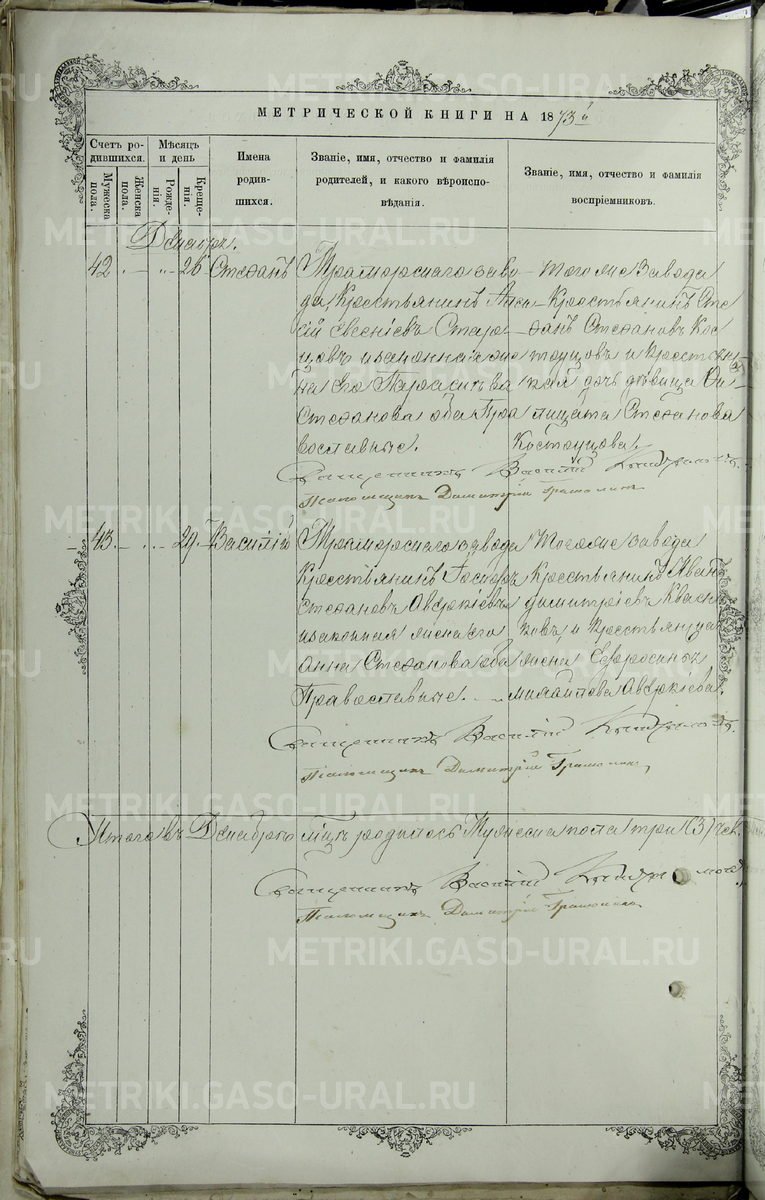 МЕТРИЧЕСКОЙ КНИГИ НА 1873й
Счетъ ро-
дившихся.
Мужеска
пола.
Женска
пола.
Мѣсяцъ
и день
Рожде-
нія.
Креще-
нія.
Имена
родив-
шихся.
Званіе, имя, отчество и фамилія
родителей, и какого вѣроиспо-
вѣданія.
Званіе, имя, отчество и фамилія
воспріемниковъ.
Декабрь.
42 26 Стефанъ
Мраморскаго заво-
да, Крестьянинъ
Евсеніевъ
и законная же-
на его Параскева
Стефанова оба Пра
вославные.
Тогоже завода
Крестьянинъ Сте
фанъ Стефановъ Кос
тоусовъ и Крестьян
дочь дѣвица Ѳи
лицата Стефанова
Костоусова.
Священникъ Василій
Псаломщикъ Димитрій
43. 29. Василій
Мраморскаго завода
Крестьянинъ
Стефановъ Аверкіевъ
и законная жена его
Анна Стефанова оба
Православные.
Тогоже завода
Крестьянинъ Иванъ
Димитріевъ Квасни
ковъ и Крестьянца
жена Ефросинья
Михайлова Аверкіева.
Священникъ Василій
Псаломщикъ Димитрій
Итого въ Декабрѣ мцѣ родилось Мужеска пола три (3) чел.
Священникъ Василій
Псаломщикъ Димитрій
METRIKI.GASO-URAL.RU